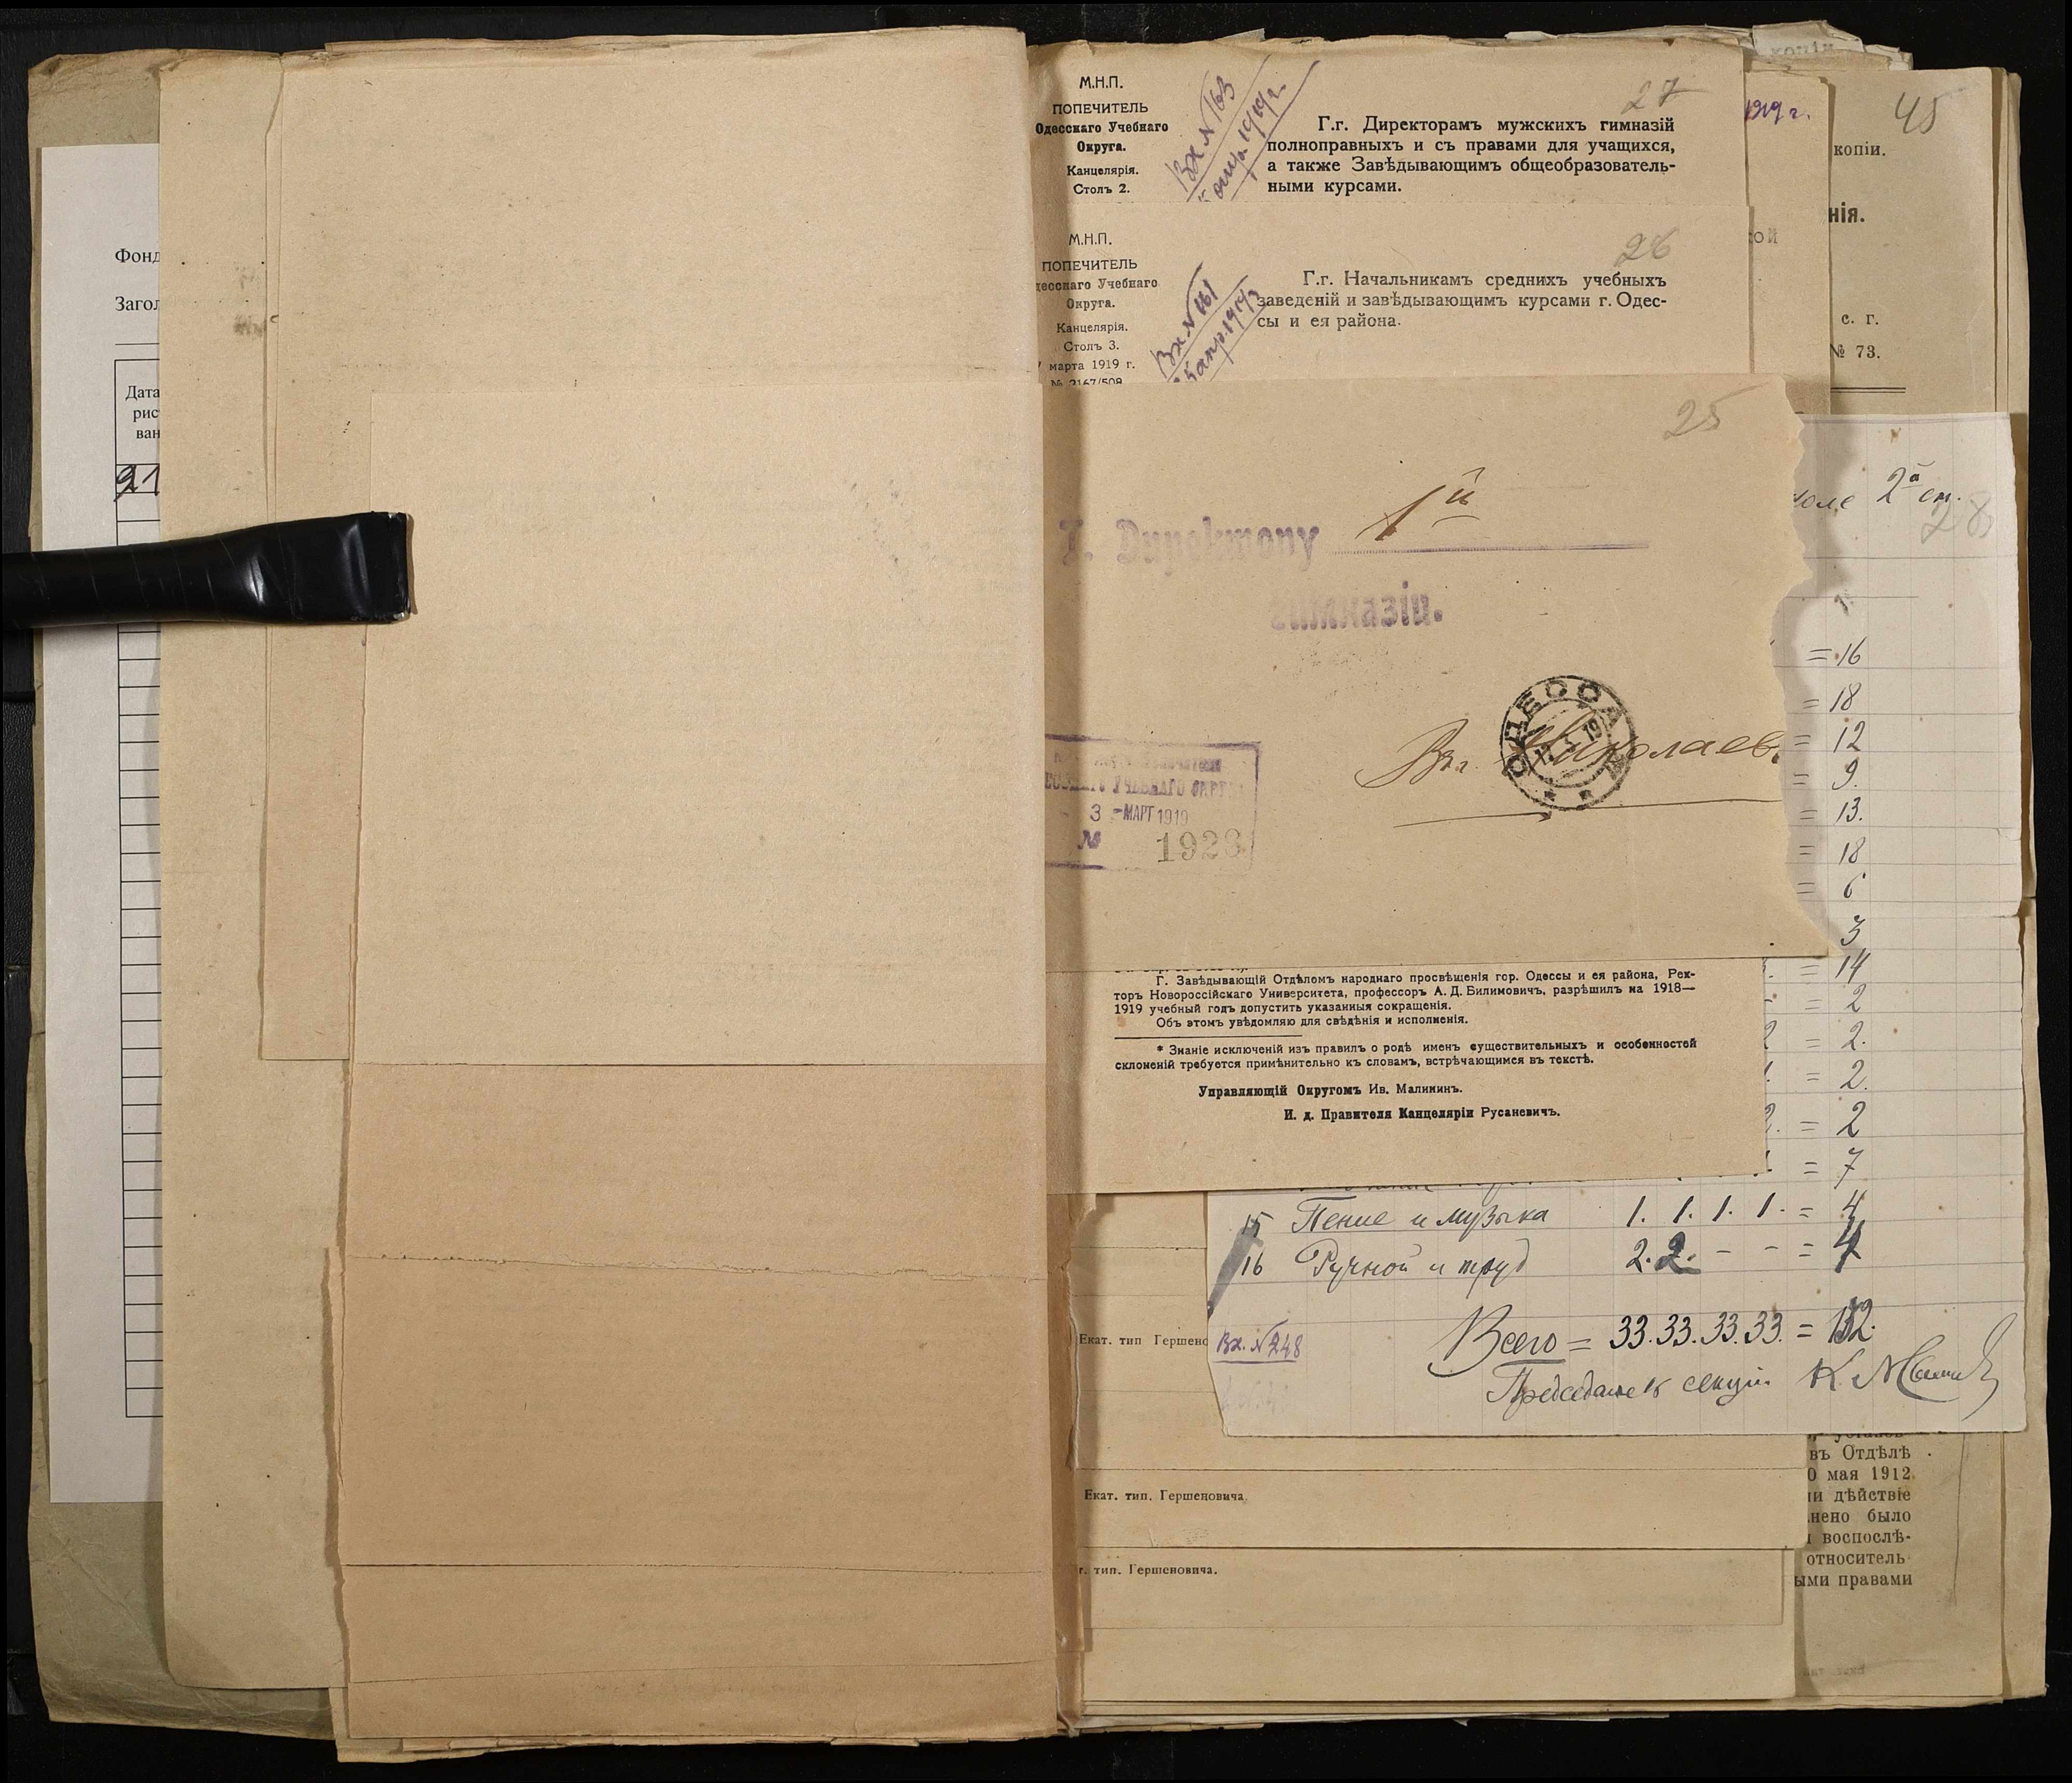 Фонд
Загол
Дата
рис
ван
91
копіи
М.Н.П.
ПОПЕЧИТЕЛЬ
Одесскаго Учебнаго
Округа.
Канцелярія.
Столъ 2.
Вх № 163
апр. 1919 г.
27
Г.г. Директорамъ мужскихъ гимназій
полноправныхъ и съ правами для учащихся,
а также Завѣдывающимъ общеобразователь-
ными курсами.
М.Н.П.
ПОПЕЧИТЕЛЬ
десскаго Учебнаго
Округа.
Канцелярія.
Столъ 3.
марта 1919 г.
№ 2167/508
Вх № 161
26
Г.г. Начальникамъ среднихъ учебныхъ
заведеній и завѣдывающимъ курсами г. Одес-
сы и ея района.
1919 г.
ой
45
копіи.
нія.
с. г.
№ 73.
25
1й
Г. Директору
гимназіи.
ОДЕССА
19
Вг. Николаев
УЧЕБНАГО ОКРУГ
3 - МАРТ 1919
№ 1928
Г. Завѣдывающій Отдѣломъ народнаго просвѣщенія гор. Одессы и ея района, Рек-
торъ Новороссійскаго Университета, профессоръ А. Д. Билимовичъ, разрѣшилъ на 1918—
1919 учебный годъ допустить указанныя сокращенія.
Объ этомъ увѣдомляю для свѣдѣнія и исполненія.
* Знаніе исключеній изъ правилъ о родѣ именъ существительныхъ и особенностей
склоненій требуется примѣнительно къ словамъ, встрѣчающимся въ текстѣ.
Управляющій Округомъ Ив. Малининъ.
И. д. Правителя Канцеляріи Русановичъ.
коле 2й ст.
28
= 16
= 18
= 12
= 9.
= 13.
= 18
= 6
3
= 14
= 2
2 = 2.
1. = 2.
2. = 2
= 7
15 Пение и музыка 1. 1. 1. 1. = 4
16 Ручной и труд 2. 2. - - = 4
Всего = 33. 33. 33. 33. = 132.
Вх. № 248
Председатель секции
Екат. тип Гершено
Екат. тип. Гершеновича.
т. тип. Гершеновича.
въ Отдѣлѣ
0 мая 1912
ии дѣйствіе
нено было
и воспослѣ-
относитель-
ыми правами